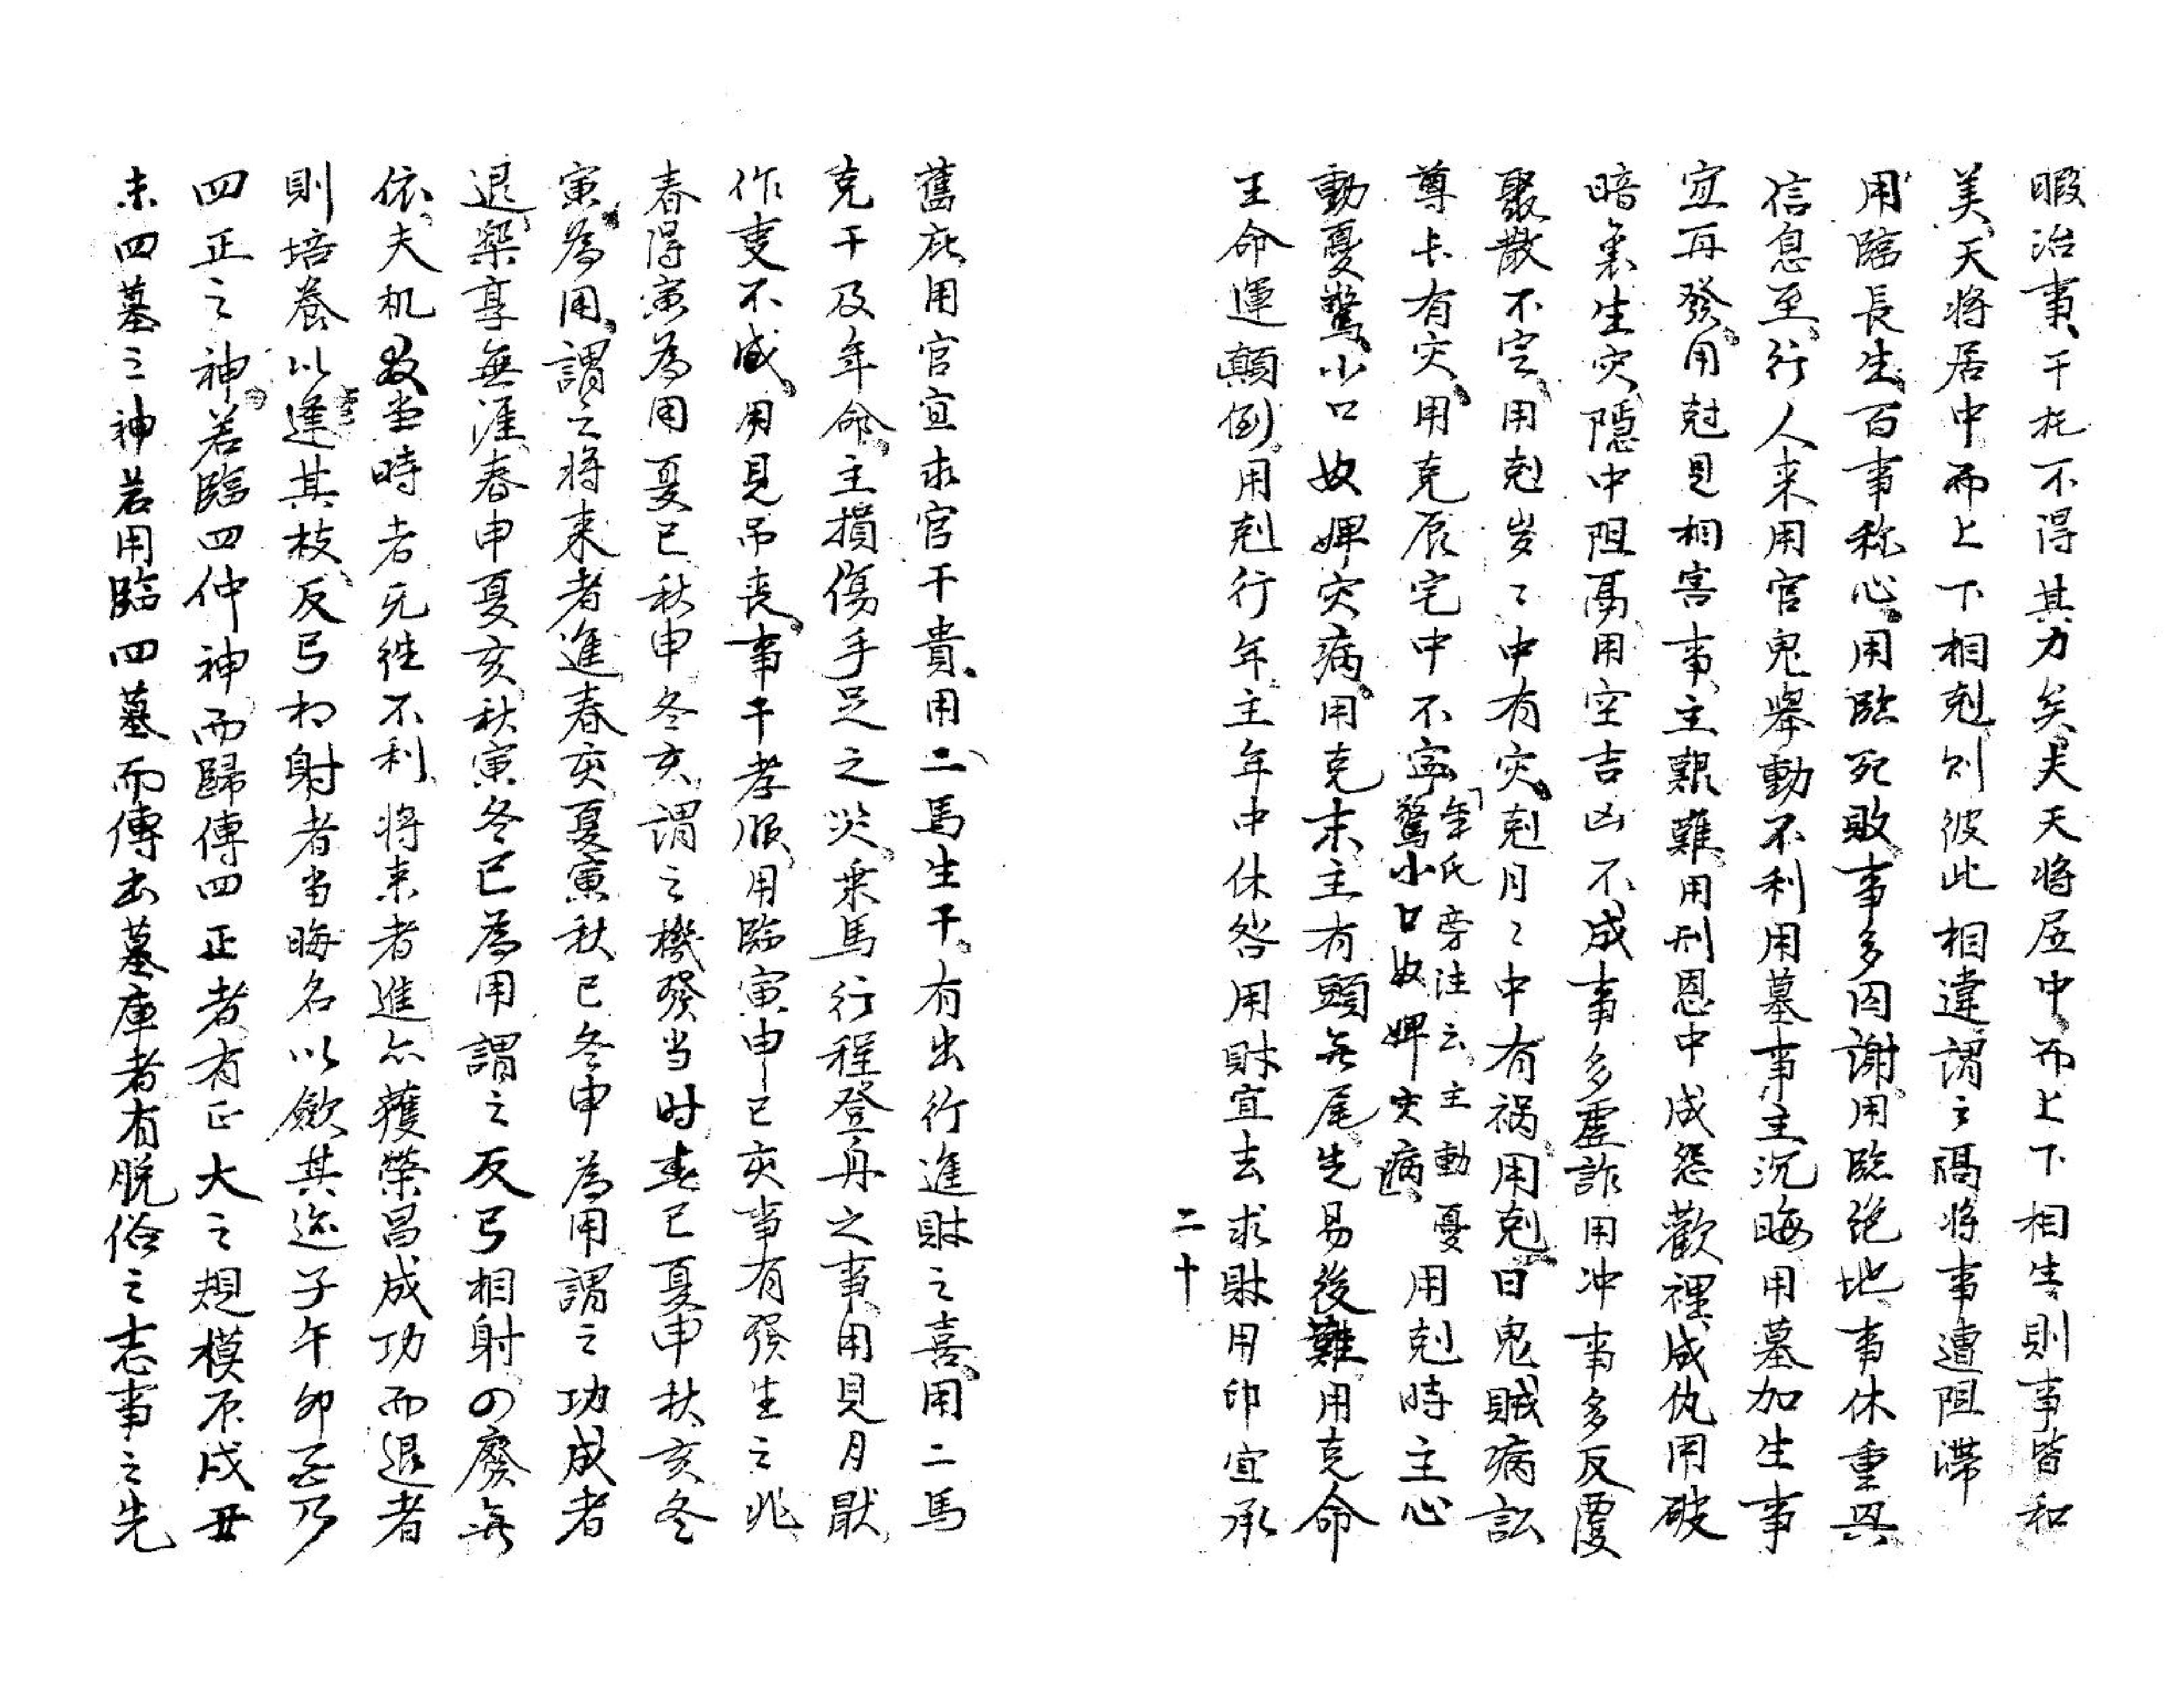 暇治事、干托不得其力矣、夫天将居中、而上下相生、則事皆和
美、天将居中而上下相剋、则彼此相違、謂之隔将、事遭阻滞
用臨長生、百事称心。用臨死敗、事多囚謝。用臨絶地、事休重興
信息至、行人来、用官鬼舉動不利、用墓事主沉晦、用墓加生事
宜再發。用尅見相害事、主艱難、用刑恩中成怨、歡裡成仇、用破
暗裏生灾、隱中阻鬲、用空吉凶不成、事多虚詐、用冲事多反覆
聚散不定、用剋岁々中有灾、剋月々中有祸、用剋日鬼賊病訟
尊卡有灾、用克辰宅中不寧、「年氏旁注云主動憂驚小口奴婢灾病」、用剋時主心
動憂驚、小口奴婢灾病、用克末主有頭無尾、先易後難、用克命
主命運顛倒。用剋行年、主年中休咎、用財宜去求財、用印宜承
二十
舊庇、用官宜求官干貴。用二馬生干。有出行進財之喜、用二馬
克干及年命、主損傷手足之灾、乘馬行程登舟之事、用見月厭、
作变不成、用見吊丧、事干孝服、用臨寅申巳亥、事有發生之兆、
春得寅為用、夏巳秋申冬亥、謂之機發当时、春巳夏申秋亥冬
寅為用、謂之将来者進、春亥夏寅秋巳冬申為用、謂之功成者
退、樂享無涯、春申夏亥秋寅冬巳為用、謂之反弓相射の廢無
依、夫机發当時者、无往不利、将来者進、亦獲榮昌、成功而退者
則培養以逢其枝、反弓相射者、当晦名以歛其迹、子午卯酉乃
四正之神。若臨四仲神而歸傳四正者、有正大之規模、辰戌丑
未四墓之神、若用臨四墓而傳出墓庫者、有脱俗之志、事之先